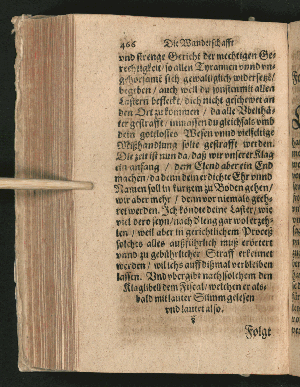 466 Die Wanderschafft
vnd strenge Gericht der mechtigen Ge-
rechtigkeit / so allen Tyrannen vnd vn-
gehorsame sich gewaltiglich widersetzt /
begeben / auch weil du sonsten mit allen
Lastern befleckt / dich nicht geschewet an
den Ort zu kommen / da alle Vbelthä-
ter gestrafft / inmassen du gleichfals vnd
dein gottloses Wesen vnnd vielfeltige
Mißhandlung solte gestrafft werden.
Die zeit ist nun da / daß wir vnserer Klag
ein anfang / dem Elend aber ein End
machen / da dem deiner dichte Ehr vnnd
Namen soll in kurtzem zu Boden gehen /
wir aber mehr / denn vor niemals gereh-
ret werden. Ich köndte deine Laster / wie
viel dero seyn / nach d'leng gar wol erzeh-
len / weil aber in gerichtlichem Proceß
solches alles außführlich muß erörtert
vnnd zu gebührlicher Straff erkennet
werden / wil ichs auff dißmal verbleiben
lassen. Vnd vbergib nach solchem den
Klaglibell dem Fiscal / welchen er als-
bald mit lauter Stimm gelesen
vnd lautet also.
Folgt